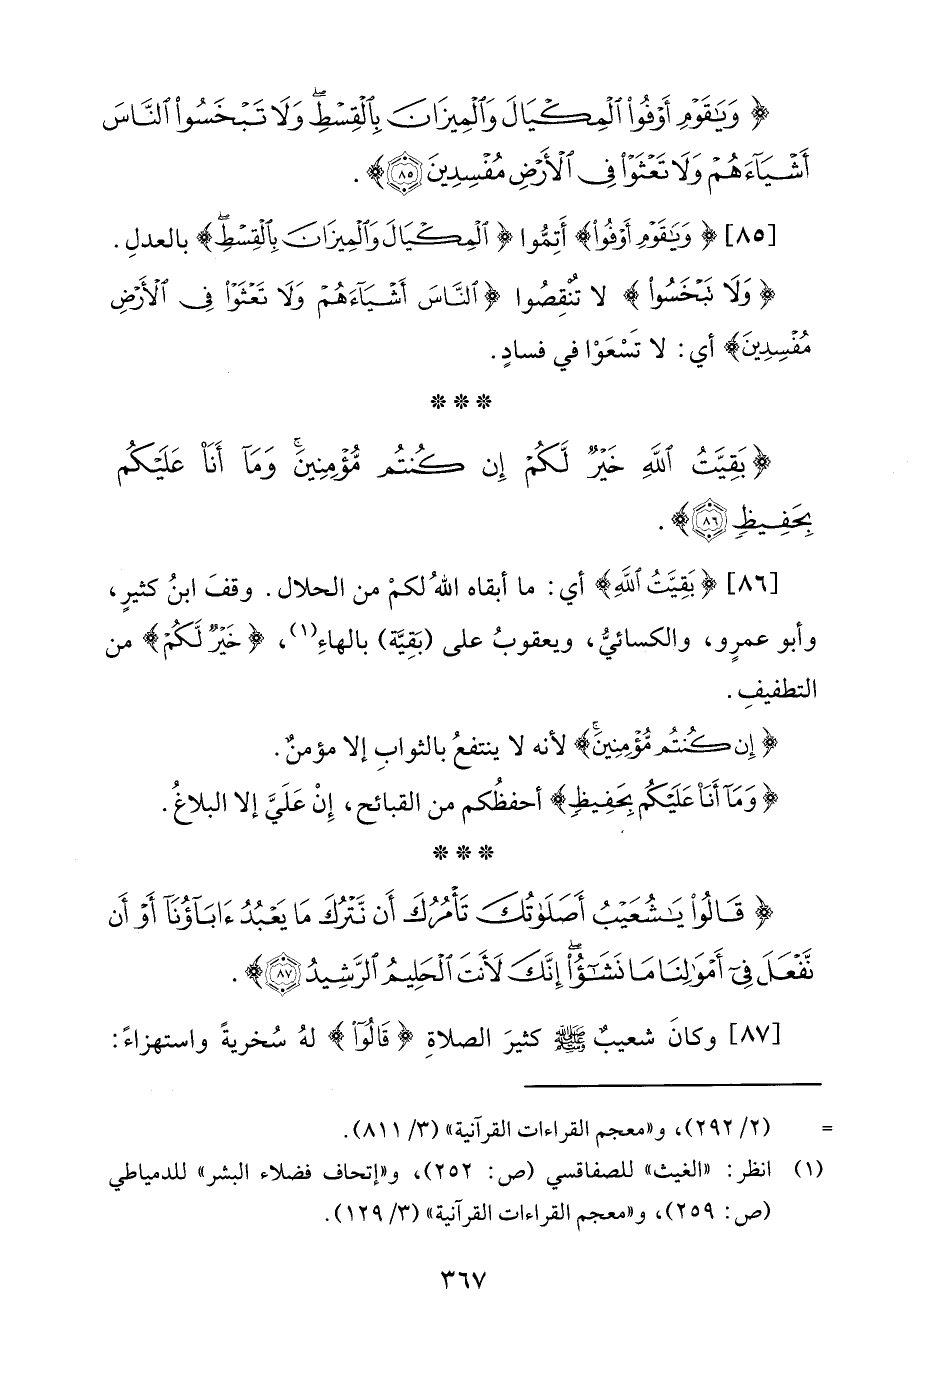 ﴿ وَيَٰقَوۡمِ أَوۡفُواْ ٱلۡمِكۡيَالَ وَٱلۡمِيزَانَ بِٱلۡقِسۡطِۖ وَلَا تَبۡخَسُواْ ٱلنَّاسَ
أَشۡيَآءَهُمۡ وَلَا تَعۡثَوۡاْ فِي ٱلۡأَرۡضِ مُفۡسِدِينَ ٨٥﴾ .
[٨٥] ﴿ وَيَٰقَوۡمِ أَوۡفُواْ﴾ أَتِمُّوا ﴿ ٱلۡمِكۡيَالَ وَٱلۡمِيزَانَ بِٱلۡقِسۡطِۖ﴾ بالعدلِ .
﴿ وَلَا تَبۡخَسُواْ ﴾ لا تُنْقِصُوا ﴿ٱلنَّاسَ أَشۡيَآءَهُمۡ وَلَا تَعۡثَوۡاْ فِي ٱلۡأَرۡضِ
مُفۡسِدِينَ﴾ أي: لا تَسْعَوْا في فسادٍ.
* * *
﴿ بَقِيَّتُ ٱللَّهِ خَيۡرٞ لَّكُمۡ إِن كُنتُم مُّؤۡمِنِينَۚ وَمَآ أَنَا۠ عَلَيۡكُم
بِحَفِيظٖ ٨٦﴾ .
[٨٦] ﴿ بَقِيَّتُ ٱللَّهِ﴾ أي: ما أبقاه اللهُ لكمْ من الحلال. وقفَ ابنُ كثيرٍ،
وأبو عمرٍو، والكسائيُّ، ويعقوبُ على (بَقِيَّة) بالهاءِ(١)، ﴿ خَيۡرٞ لَّكُمۡ﴾ من
التطفيفِ.
﴿ إِن كُنتُم مُّؤۡمِنِينَۚ﴾ لأنه لا ينتفعُ بالثوابِ إلا مؤمنٌ.
﴿ وَمَآ أَنَا۠ عَلَيۡكُم بِحَفِيظٖ﴾ أحفظُكم من القبائح، إِنْ عَلَيَّ إلا البلاغُ.
* * *
﴿ قَالُواْ يَٰشُعَيۡبُ أَصَلَوٰتُكَ تَأۡمُرُكَ أَن نَّتۡرُكَ مَا يَعۡبُدُ ءَابَآؤُنَآ أَوۡ أَن
نَّفۡعَلَ فِيٓ أَمۡوَٰلِنَا مَا نَشَٰٓؤُاْۖ إِنَّكَ لَأَنتَ ٱلۡحَلِيمُ ٱلرَّشِيدُ ٨٧﴾ .
[٨٧] وكانَ شعيبٌ ﷺ كثيرَ الصلاةِ ﴿ قَالُوٓاْ ﴾ لهُ سُخريةً واستهزاءً:
= (٢/ ٢٩٢)، و«معجم القراءات القرآنية» (٣/ ٨١١).
(١) انظر: «الغيث» للصفاقسي (ص: ٢٥٢)، و«إتحاف فضلاء البشر» للدمياطي
(ص: ٢٥٩)، و«معجم القراءات القرآنية» (٣/ ١٢٩).
٣٦٧